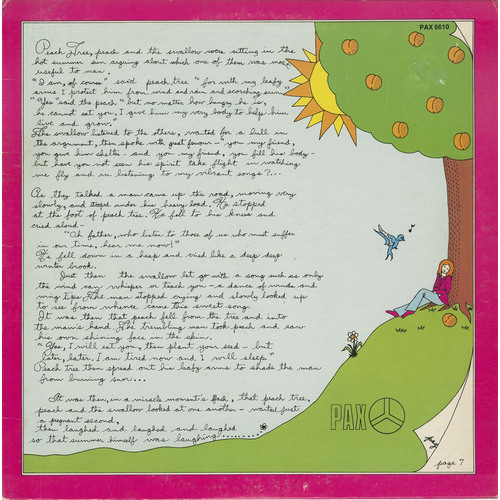 PAX 6610
Peach Tree, peach and the swallow were sitting in the
hot summer sun arguing about which one of them was more
useful to man.
"I am, of course" said peach tree "for with my leafy
arms I protect him from wind and rain and scorching sun."
"Yes" said the peach "but no matter how hungry he is,
he cannot eat you, I give him my very body to help him
live and grow."
The swallow listened to the others, waited for a lull in
the argument, then spoke with great fervour - you my friend,
you give him shelter - and you - my friend, you fill his body -
but have you not seen his spirit take flight in watching
me fly and in listening to my vibrant songs?...
As they talked a man came up the road, moving very
slowly, and stooped under his heavy load. He stopped
at the foot of peach tree. He fell to his knees and
cried aloud -
"Oh father, who listen to those of us who must suffer
in our time, hear me now!"
He fell down in a heap and cried like a deep deep
winter brook.
Just then the swallow let go with a song such as only
the wind can whisper or teach you - a dance of winds and
wing tips. The man stopped crying and slowly looked up
to see from whence came this sweet song.
It was then that peach fell from the tree and into
the man's hand. The trembling man took peach and saw
his own shining face in the skin.
"Yes, I will eat you, then plant your seed - but
later, later, I am tired now and I will sleep."
Peach tree then spread out his leafy arms to shade the man
from burning sun...
It was then, in a miracle moment's flash, that peach tree,
peach and the swallow looked at one another - waited just
a pregnant second,
then laughed and laughed and laughed
so that summer himself was laughing
PAX
page 7